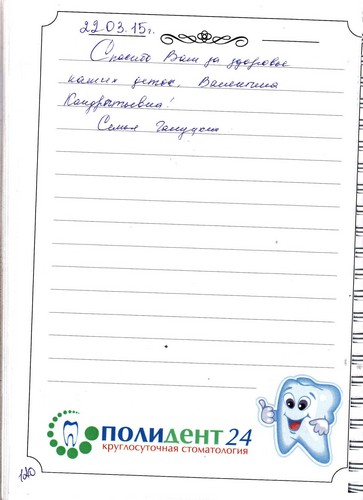 22.03.15г.
Спасибо Вам за здоровье
наших деток, Валентина
Кондратьевна!
Семья
ПОЛИДЕНТ 24
круглосуточная стоматология
120